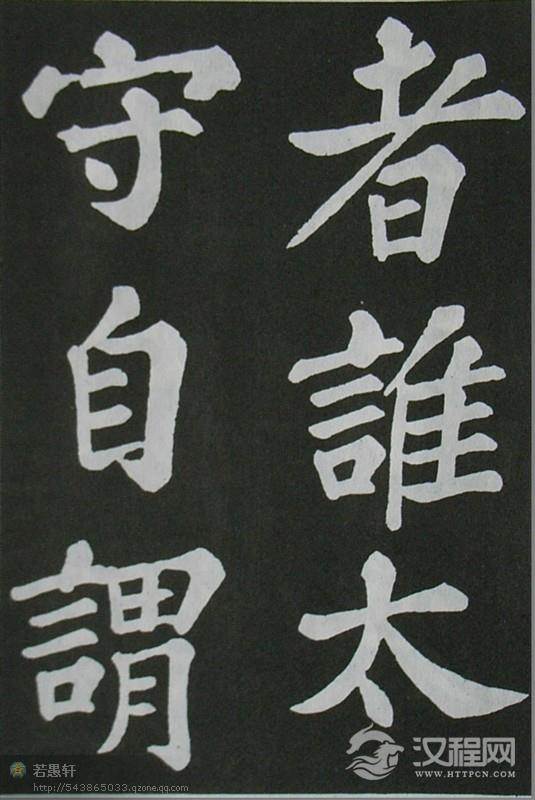 者誰太
守自謂
若愚轩
http://543865033.qzone.qq.com
汉程网
WWW.HTTPCN.COM